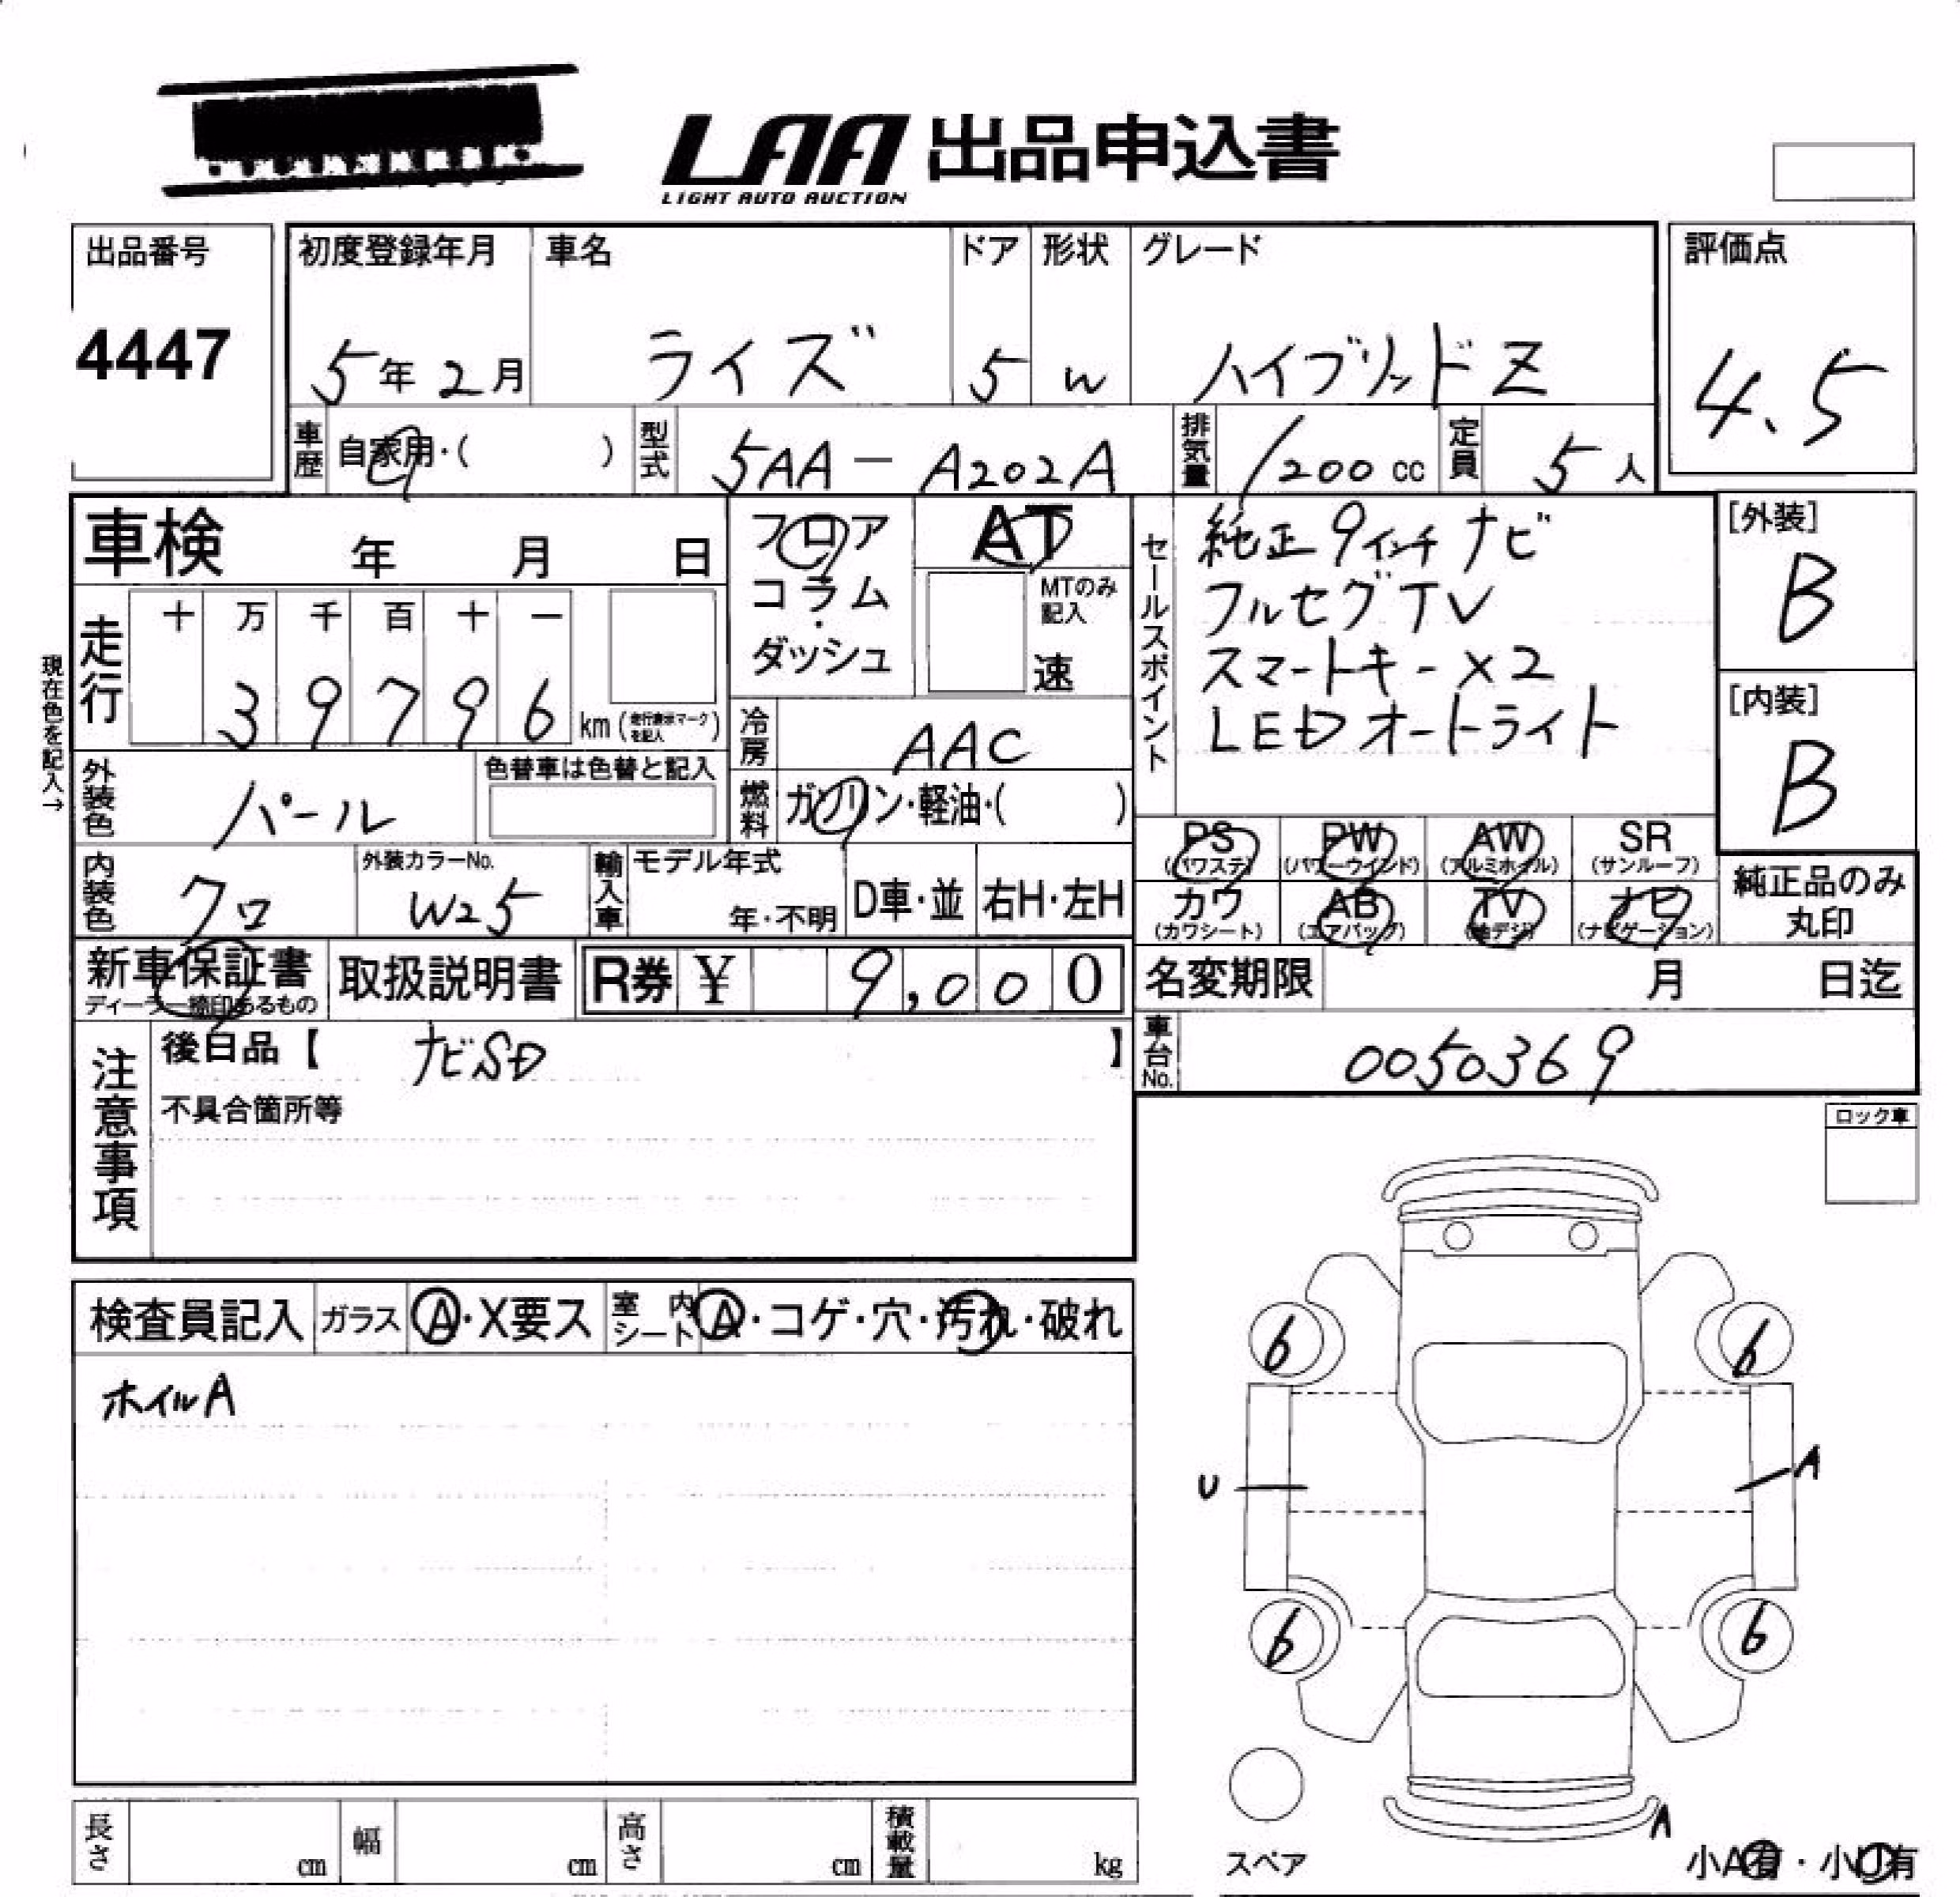 LAA 出品申込書
LIGHT AUTO AUCTION
出品番号
4447
初度登録年月 車名 ドア 形状 グレード
5年2月 ライズ 5 W ハイブリッド Z
評価点
4.5
車歴 自家用・( ) 型式 5AA-A202A 排気量 1200 cc 定員 5人
車検 年 月 日
フロア
コラム
・
ダッシュ
AT
MTのみ
記入
速
セールスポイント
純正9インチナビ
フルセグTV
スマートキー×2
LEDオートライト
[外装]
B
[内装]
B
現在色を記入→
走行
十 万 千 百 十 一
3 9 7 9 6 km (走行表示マークを記入)
冷房 AAC
外装色 パール
色替車は色替と記入
燃料 ガソリン・軽油・( )
内装色 クロ
外装カラーNo.
W25
輸入車 モデル年式
年・不明
D車・並 右H・左H
PS (パワステ) PW (パワーウインド) AW (アルミホイル) SR (サンルーフ)
カワ (カワシート) AB (エアバッグ) TV (地デジ) ナビ (ナビゲーション)
純正品のみ
丸印
新車保証書
ディーラー捺印あるもの
取扱説明書
R券 ¥ 9,000
名変期限 月 日迄
車台No. 0050369
注意事項
後日品【 ナビSD 】
不具合箇所等
ロック車
検査員記入 ガラス A・X要ス 室内シート A・コゲ・穴・汚れ・破れ
ホイルA
6 6
U A
6 6
A
スペア
小A有・小U有
長さ cm 幅 cm 高さ cm 積載量 kg